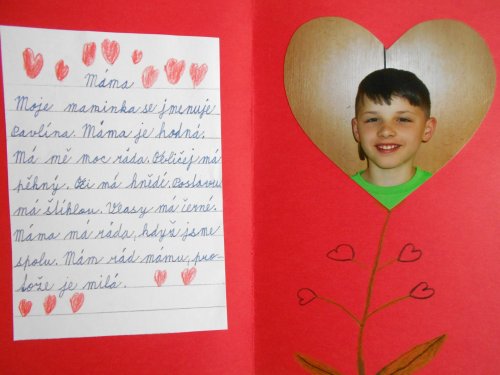 Máma
Moje maminka se jmenuje
Pavlína. Máma je hodná.
Má mě moc ráda. Obličej má
pěkný. Oči má hnědé. Postavu
má štíhlou. Vlasy má černé.
Máma má ráda, když jsme
spolu. Mám rád mámu, pro-
tože je milá.